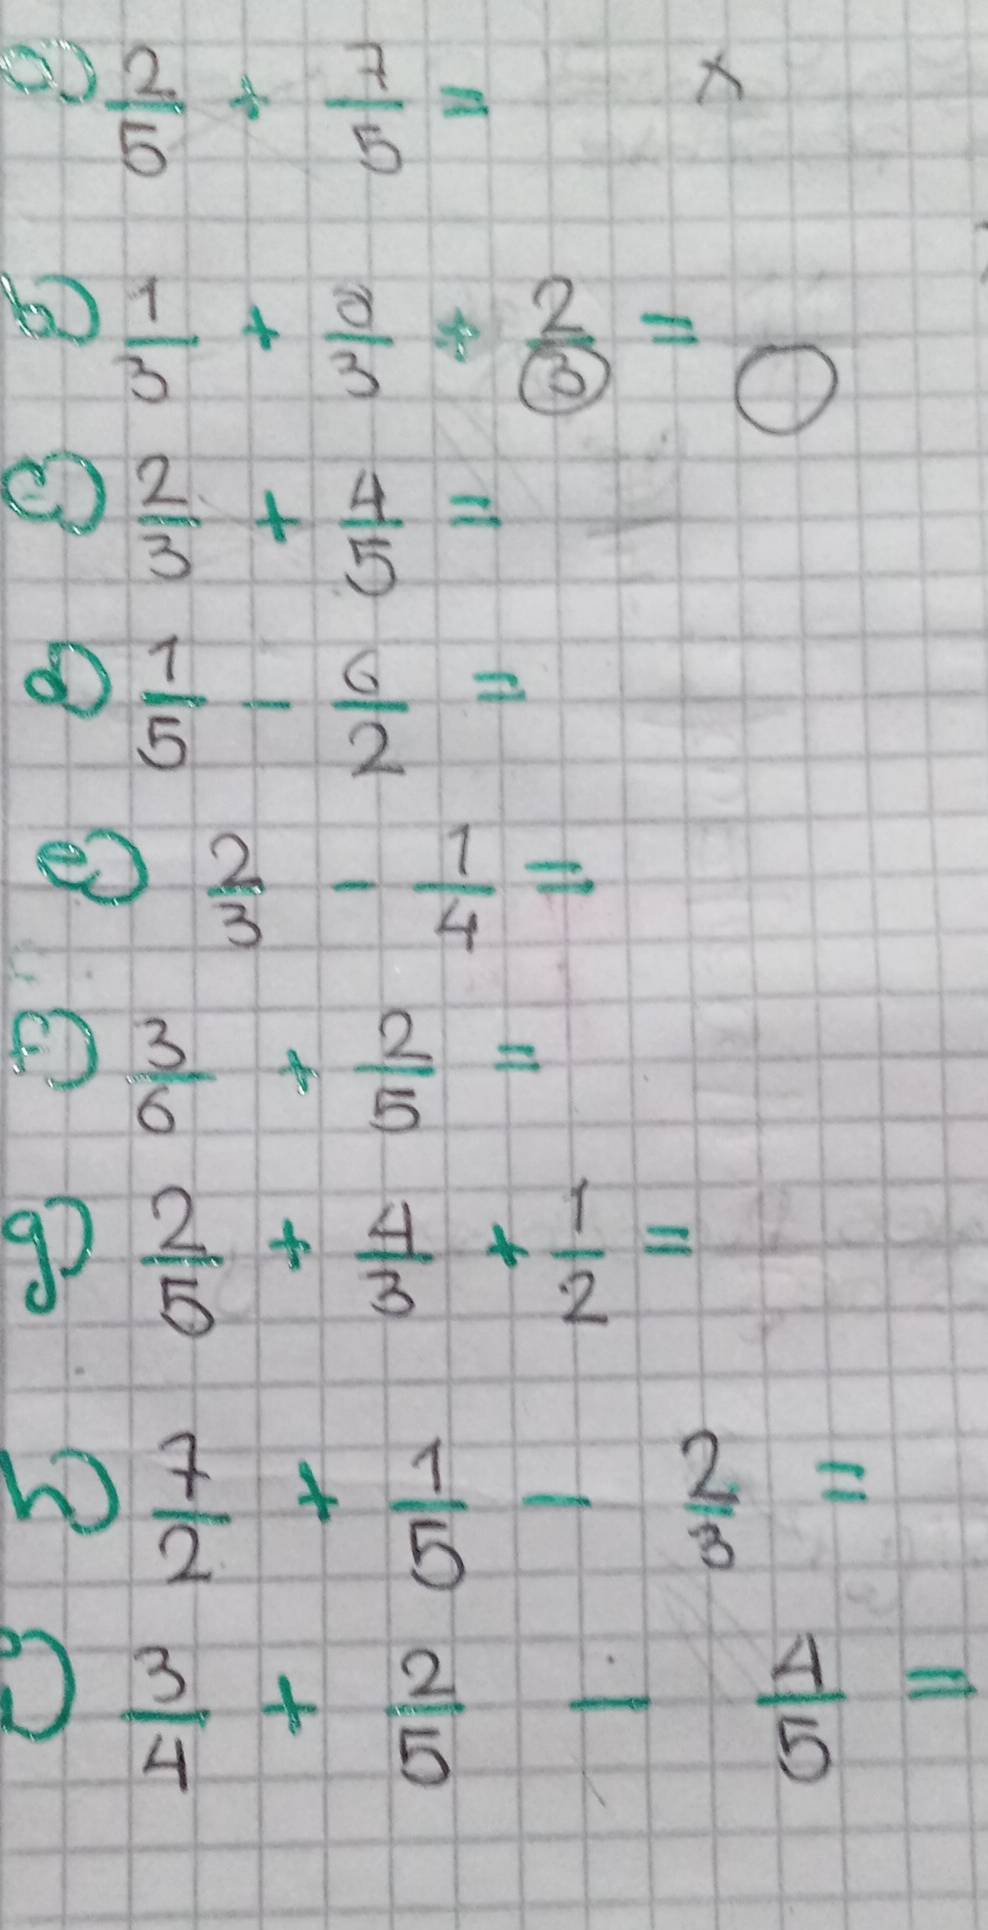 a) 2/5 + 7/5 = x
b) 1/3 + /3 + 2/3 =
c) 2/3 + 4/5 =
d) 1/5 - 6/2 =
e) 2/3 - 1/4 =
f) 3/6 + 2/5 =
g) 2/5 + 4/3 + 1/2 =
h) 7/2 + 1/5 - 2/3 =
i) 3/4 + 2/5 - 4/5 =